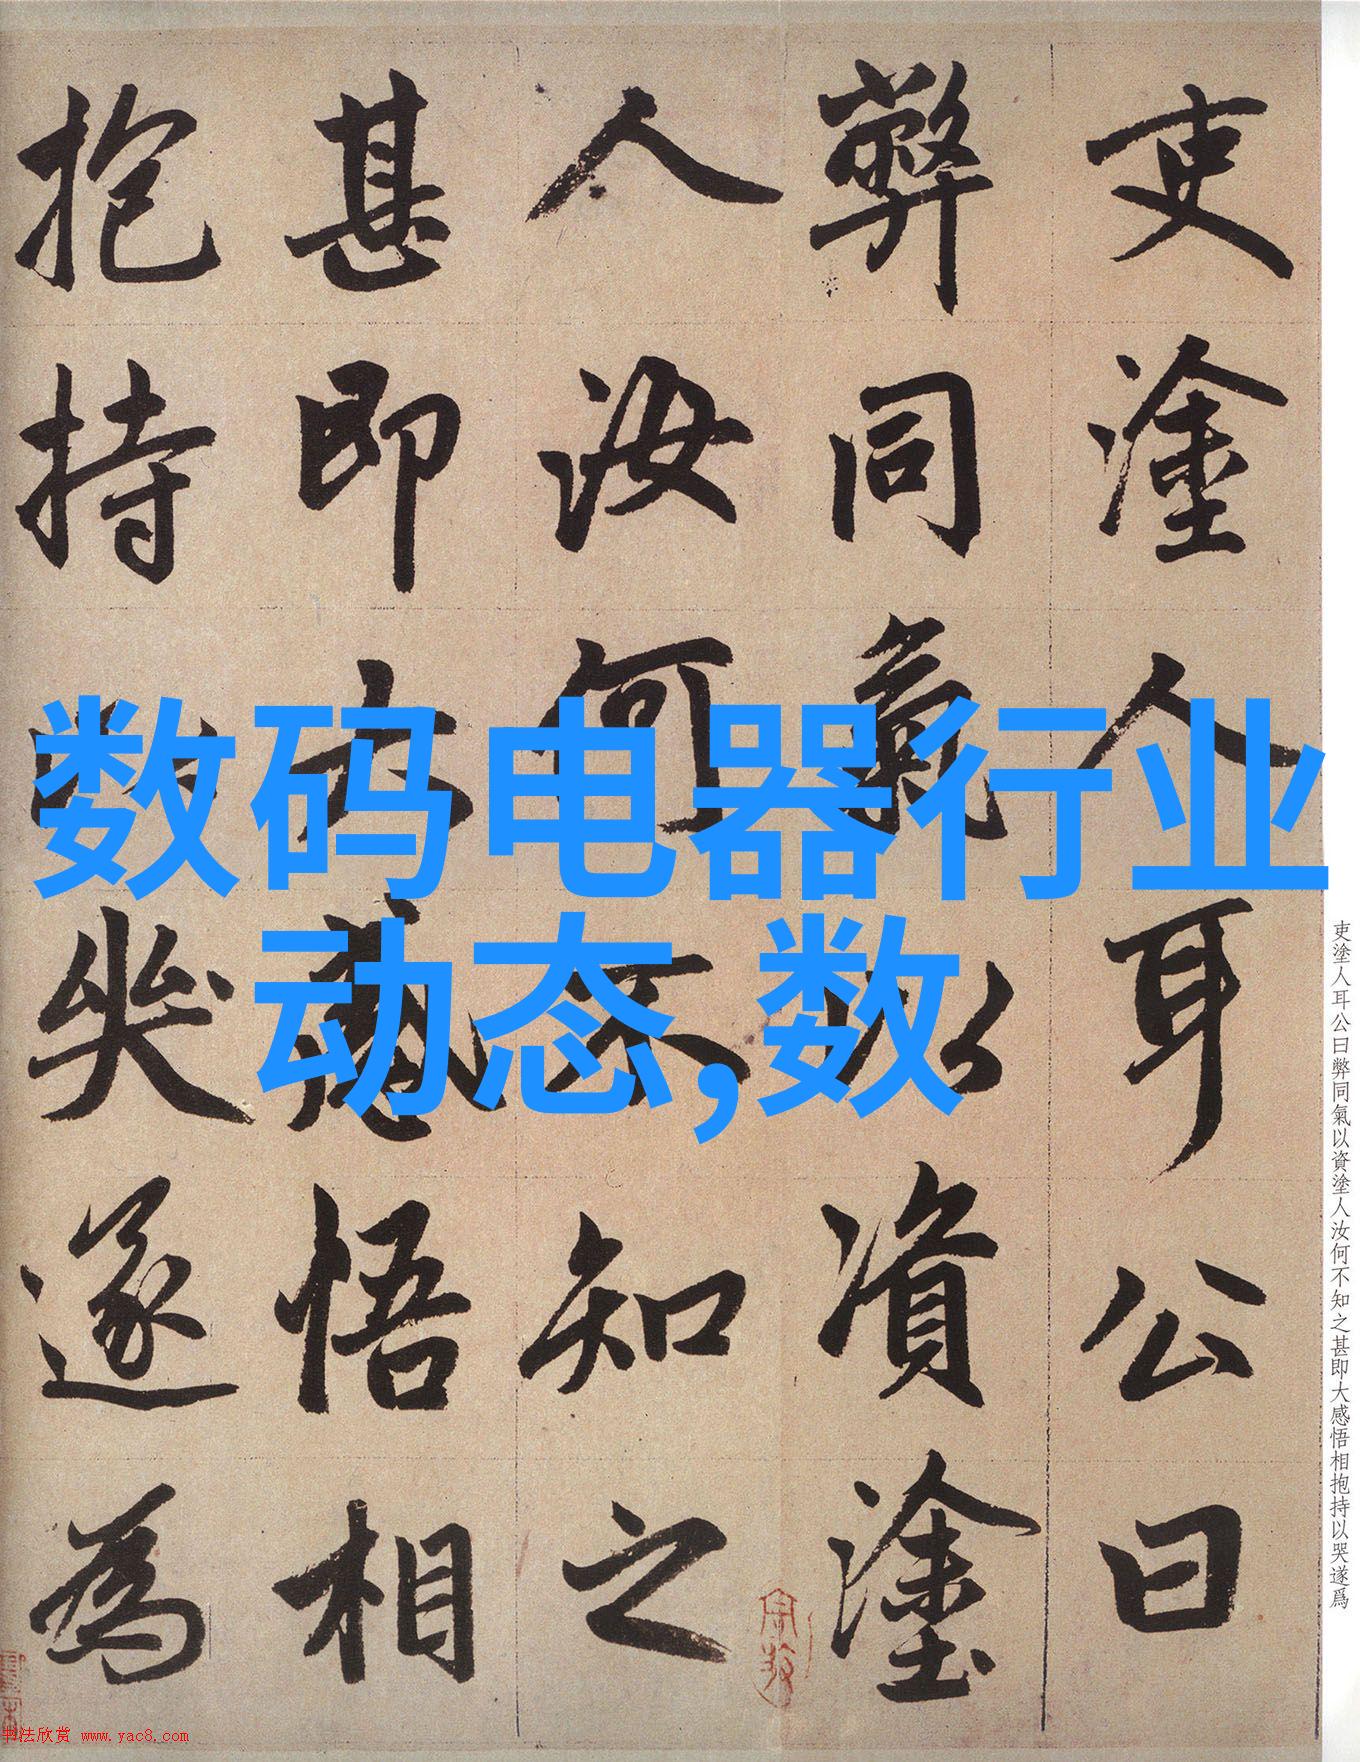 数码电器行业
动态,数
吏塗人耳公曰
弊同氣以資塗
人汝何不知之
甚即大感悟相
抱持以哭遂為
吏塗人耳公曰弊同氣以資塗人汝何不知之甚即大感悟相抱持以哭遂爲
书法欣赏 www.yac8.com